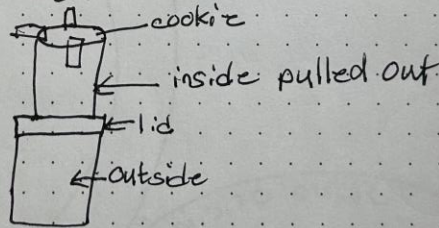 cookie
inside pulled out
lid
outside